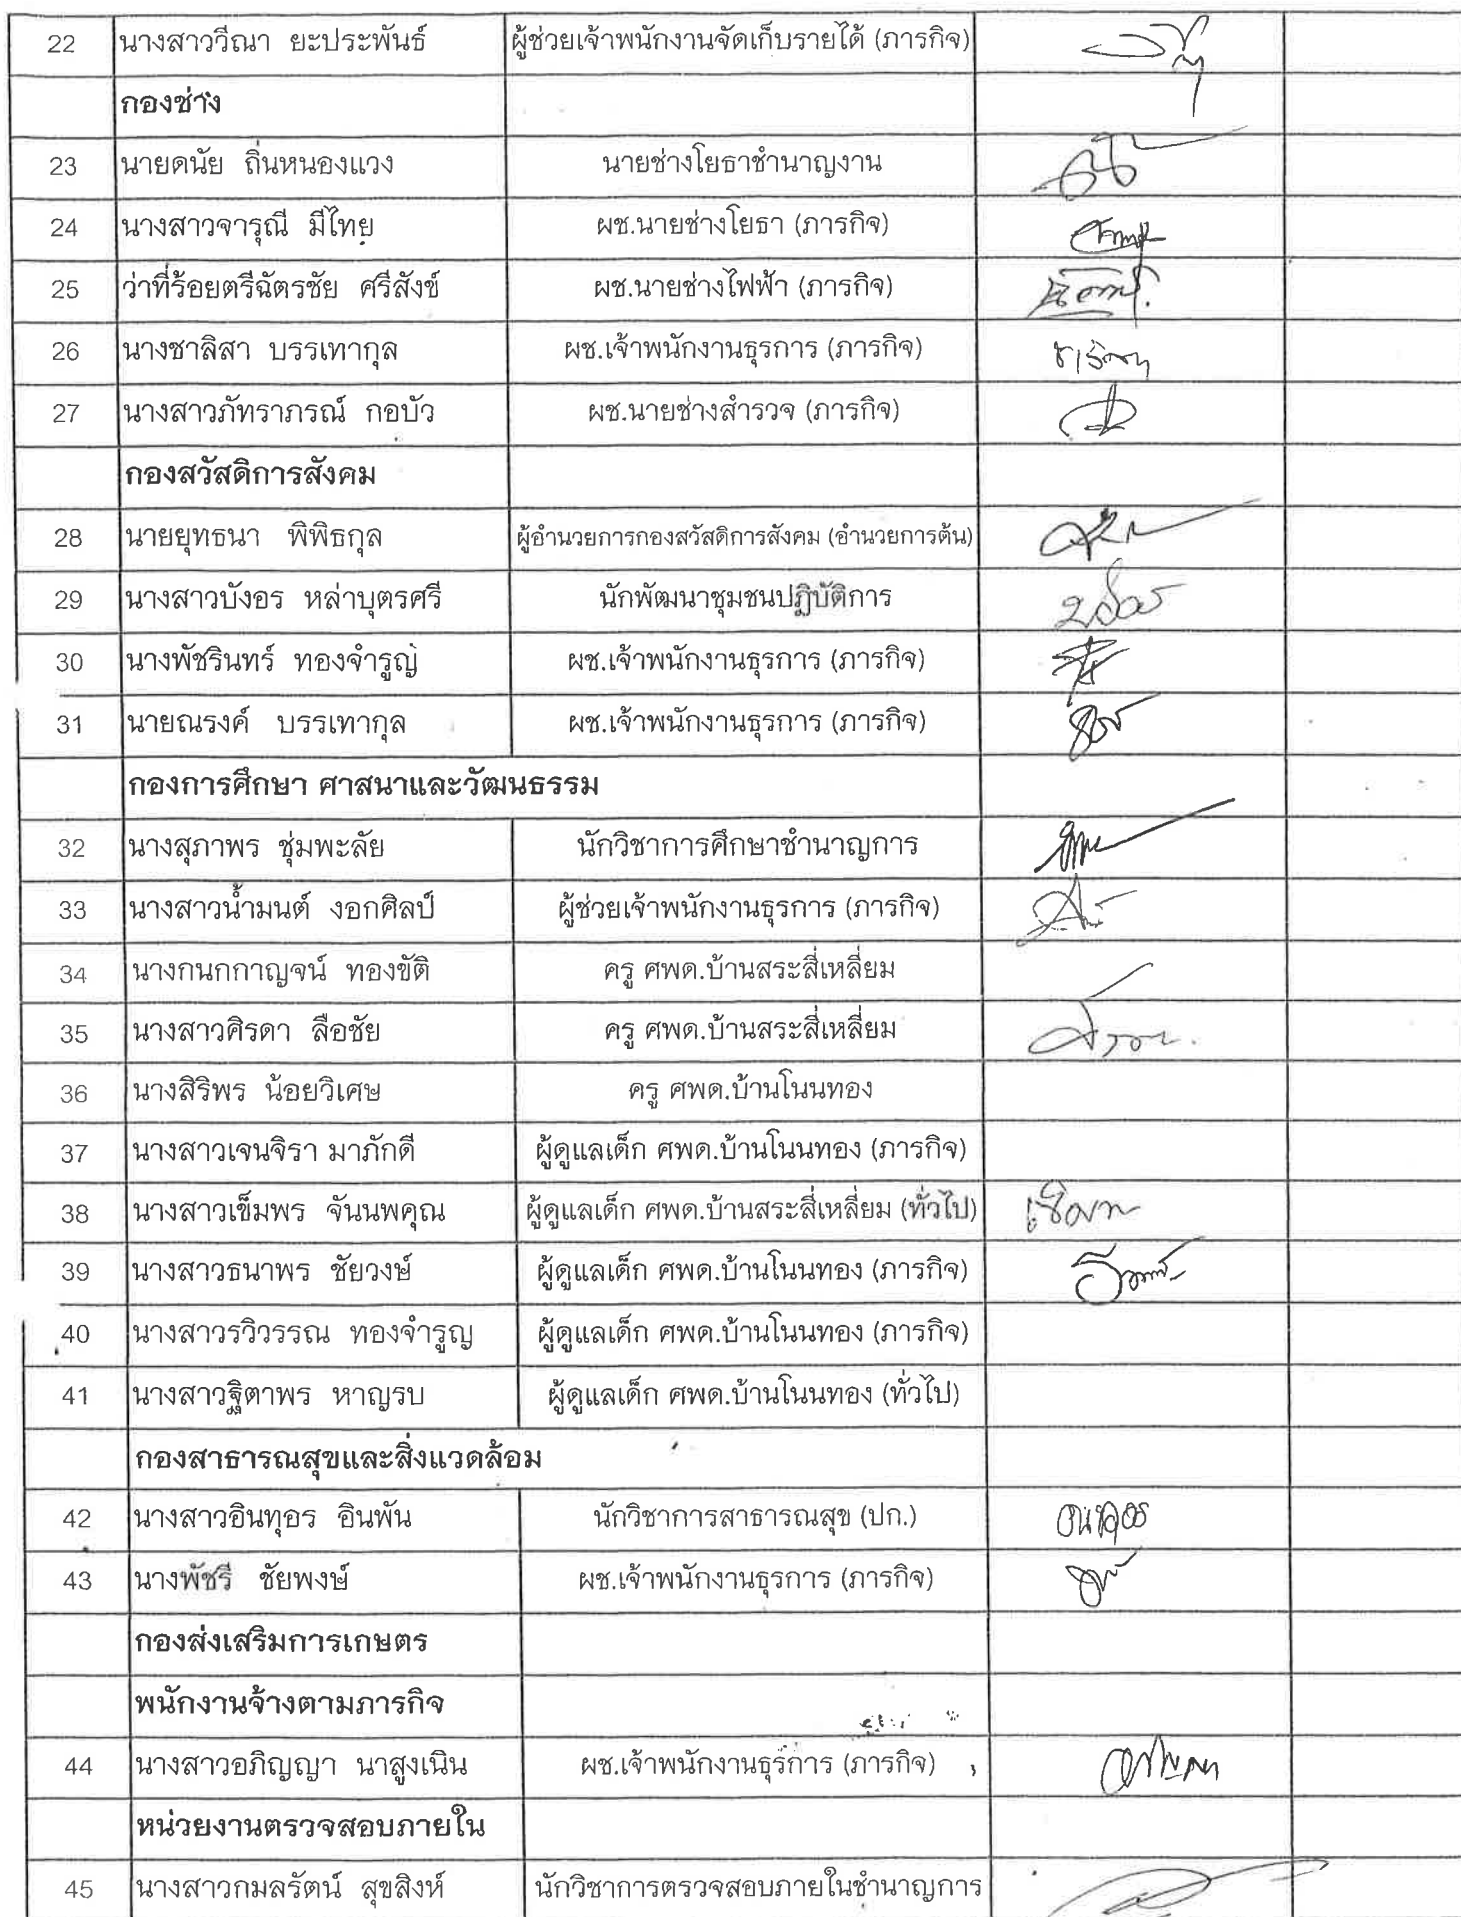 22 นางสาววีณา ยะประพันธ์ ผู้ช่วยเจ้าพนักงานจัดเก็บรายได้ (ภารกิจ)
กองช่าง
23 นายดนัย ถิ่นหนองแวง นายช่างโยธาชำนาญงาน
24 นางสาวจารุณี มีไทย ผช.นายช่างโยธา (ภารกิจ)
25 ว่าที่ร้อยตรีฉัตรชัย ศรีสังข์ ผช.นายช่างไฟฟ้า (ภารกิจ)
26 นางชาลิสา บรรเทากุล ผช.เจ้าพนักงานธุรการ (ภารกิจ)
27 นางสาวภัทราภรณ์ กอบัว ผช.นายช่างสำรวจ (ภารกิจ)
กองสวัสดิการสังคม
28 นายยุทธนา พิพิธกุล ผู้อำนวยการกองสวัสดิการสังคม (อำนวยการต้น)
29 นางสาวบังอร หล่าบุตรศรี นักพัฒนาชุมชนปฏิบัติการ
30 นางพัชรินทร์ ทองจำรูญ ผช.เจ้าพนักงานธุรการ (ภารกิจ)
31 นายณรงค์ บรรเทากุล ผช.เจ้าพนักงานธุรการ (ภารกิจ)
กองการศึกษา ศาสนาและวัฒนธรรม
32 นางสุภาพร ชุ่มพะลัย นักวิชาการศึกษาชำนาญการ
33 นางสาวน้ำมนต์ งอกศิลป์ ผู้ช่วยเจ้าพนักงานธุรการ (ภารกิจ)
34 นางกนกกาญจน์ ทองขัติ ครู ศพด.บ้านสระสี่เหลี่ยม
35 นางสาวศิรดา ลือชัย ครู ศพด.บ้านสระสี่เหลี่ยม
36 นางสิริพร น้อยวิเศษ ครู ศพด.บ้านโนนทอง
37 นางสาวเจนจิรา มาภักดี ผู้ดูแลเด็ก ศพด.บ้านโนนทอง (ภารกิจ)
38 นางสาวเข็มพร จันนพคุณ ผู้ดูแลเด็ก ศพด.บ้านสระสี่เหลี่ยม (ทั่วไป)
39 นางสาวธนาพร ชัยวงษ์ ผู้ดูแลเด็ก ศพด.บ้านโนนทอง (ภารกิจ)
40 นางสาวรวิวรรณ ทองจำรูญ ผู้ดูแลเด็ก ศพด.บ้านโนนทอง (ภารกิจ)
41 นางสาวฐิตาพร หาญรบ ผู้ดูแลเด็ก ศพด.บ้านโนนทอง (ทั่วไป)
กองสาธารณสุขและสิ่งแวดล้อม
42 นางสาวอินทุอร อินพัน นักวิชาการสาธารณสุข (ปก.) อินทุอร
43 นางพัชรี ชัยพงษ์ ผช.เจ้าพนักงานธุรการ (ภารกิจ)
กองส่งเสริมการเกษตร
พนักงานจ้างตามภารกิจ
44 นางสาวอภิญญา นาสูงเนิน ผช.เจ้าพนักงานธุรการ (ภารกิจ)
หน่วยงานตรวจสอบภายใน
45 นางสาวกมลรัตน์ สุขสิงห์ นักวิชาการตรวจสอบภายในชำนาญการ